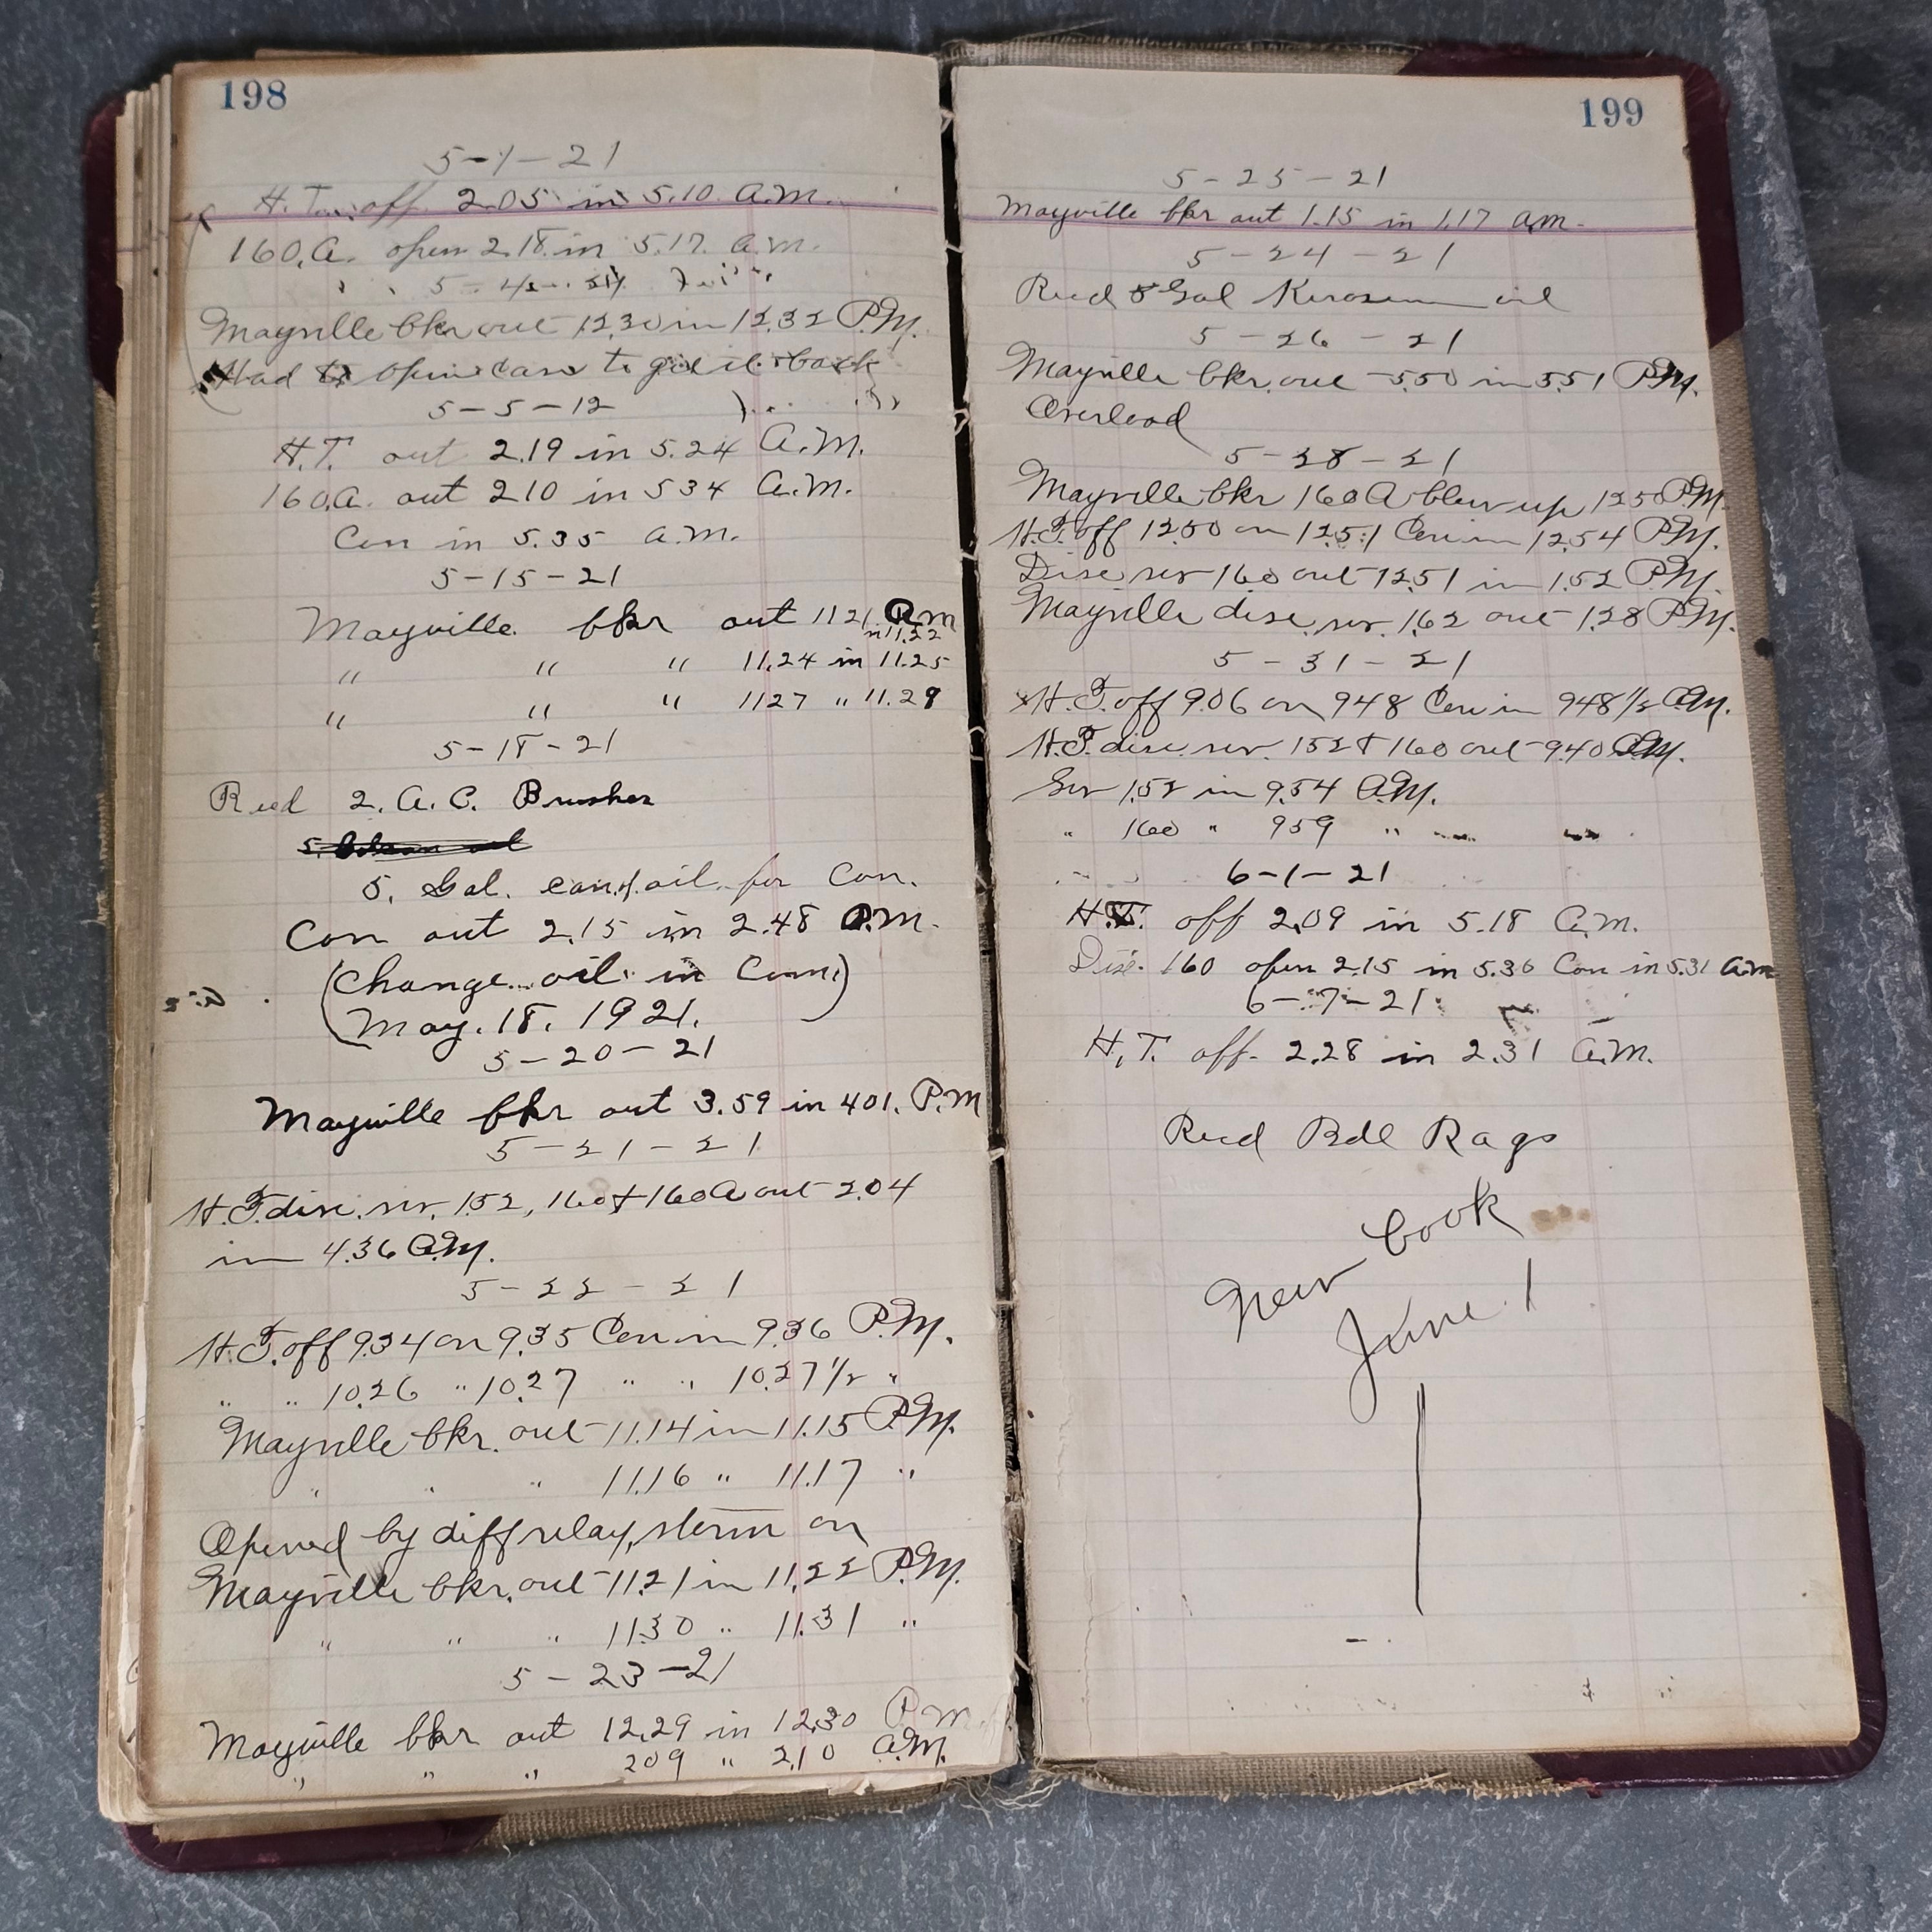 198
5-1-21
H.T. off 2.05 in 5.10. A.M.
160.A. open 2.18 in 5.17. A.M.
5-4-21
Mayville bkr out 12.30 in 12.32 P.M.
Had to open case to get it back
5-5-12
H.T. out 2.19 in 5.24 A.M.
160.A. out 210 in 534 A.M.
Con in 5.35 A.M.
5-15-21
Mayville bkr out 1121 A.M
in 11.22
" " " 11.24 in 11.25
" " " 1127 " 11.29
5-18-21
Recd 2. A.C. Brushes
5. Gal. can of oil for Con.
Con out 2.15 in 2.48 P.M.
(Change oil in Com)
(May. 18. 1921.
5-20-21
Mayville bkr out 3.59 in 401. P.M
5-21-21
H.T. disc. ser. 152, 160 + 160A out 2.04
in 4.36 A.M.
5-22-21
H.T. off 9.34 on 9.35 Con in 9.36 P.M.
" " 10.26 " 10.27 " " 10.27 1/2 "
Mayville bkr. out 11.14 in 11.15 P.M.
" " " 11.16 " 11.17 "
Opened by diff relay, storm on
Mayville bkr. out 11.21 in 11.22 P.M.
" " " 11.30 " 11.31 "
5-23-21
Mayville bkr out 12.29 in 12.30 P.M
" " " 209 " 2.10 A.M.
199
5-25-21
Mayville bkr out 1.15 in 1.17 am.
5-24-21
Recd 5 Gal Kerosene oil
5-26-21
Mayville bkr. out 5.50 in 5.51 P.M.
Overload
5-28-21
Mayville bkr 160A blew up 12.50 P.M.
H.T. off 12.50 on 12.51 Con in 12.54 P.M.
Disc ser 160 out 12.51 in 1.52 P.M.
Mayville disc. ser. 162 out 1.28 P.M.
5-31-21
H.T. off 9.06 on 948 Con in 948 1/2 A.M.
H.T. disc. ser. 152 + 160 out 9.40 A.M.
Ser 152 in 9.54 A.M.
" 160 " 959 "
6-1-21
H.T. off 2.09 in 5.18 A.M.
Disc. 160 open 2.15 in 5.30 Con in 5.31 A.M
6-7-21
H.T. off 2.28 in 2.31 A.M.
Recd Bdl Rags
New Cook
June 1